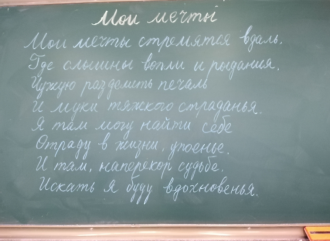 Мои мечты
Мои мечты стремятся вдаль.
Где слышны вопли и рыдания.
Чужую разделить печаль
И муки тяжкого страданья.
Я там могу найти себе
Отраду в жизни, упоенье.
И там, наперекор судьбе.
Искать я буду вдохновенья.